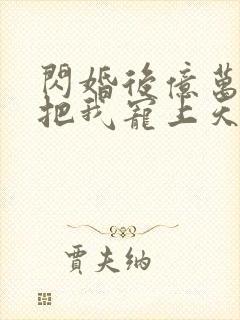 閃婚後億萬
把我寵上天
賈夫納